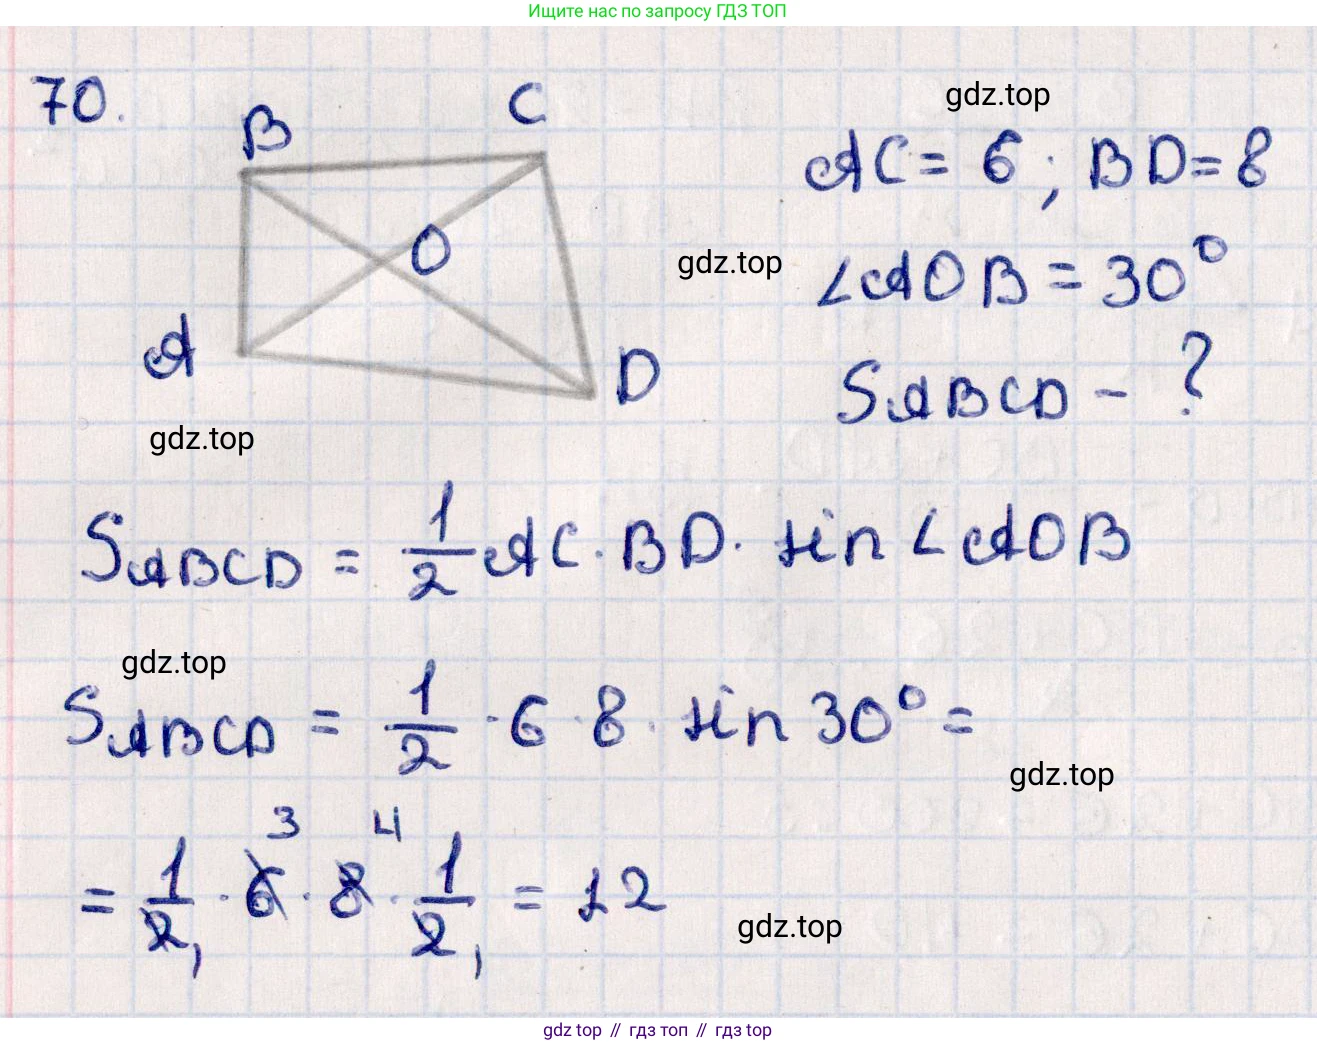 Ищите нас по запросу ГДЗ ТОП
70.
B
C
gdz.top
AC = 6 ; BD = 8
O
gdz.top
∠AOB = 30°
A
D
S ABCD - ?
gdz.top
S ABCD = 1/2 AC · BD · sin ∠AOB
gdz.top
S ABCD = 1/2 · 6 · 8 · sin 30° =
gdz.top
3 4
= 1/2 · 6 · 8 · 1/2 = 12
1 1
gdz.top
gdz top // гдз топ // gdz top